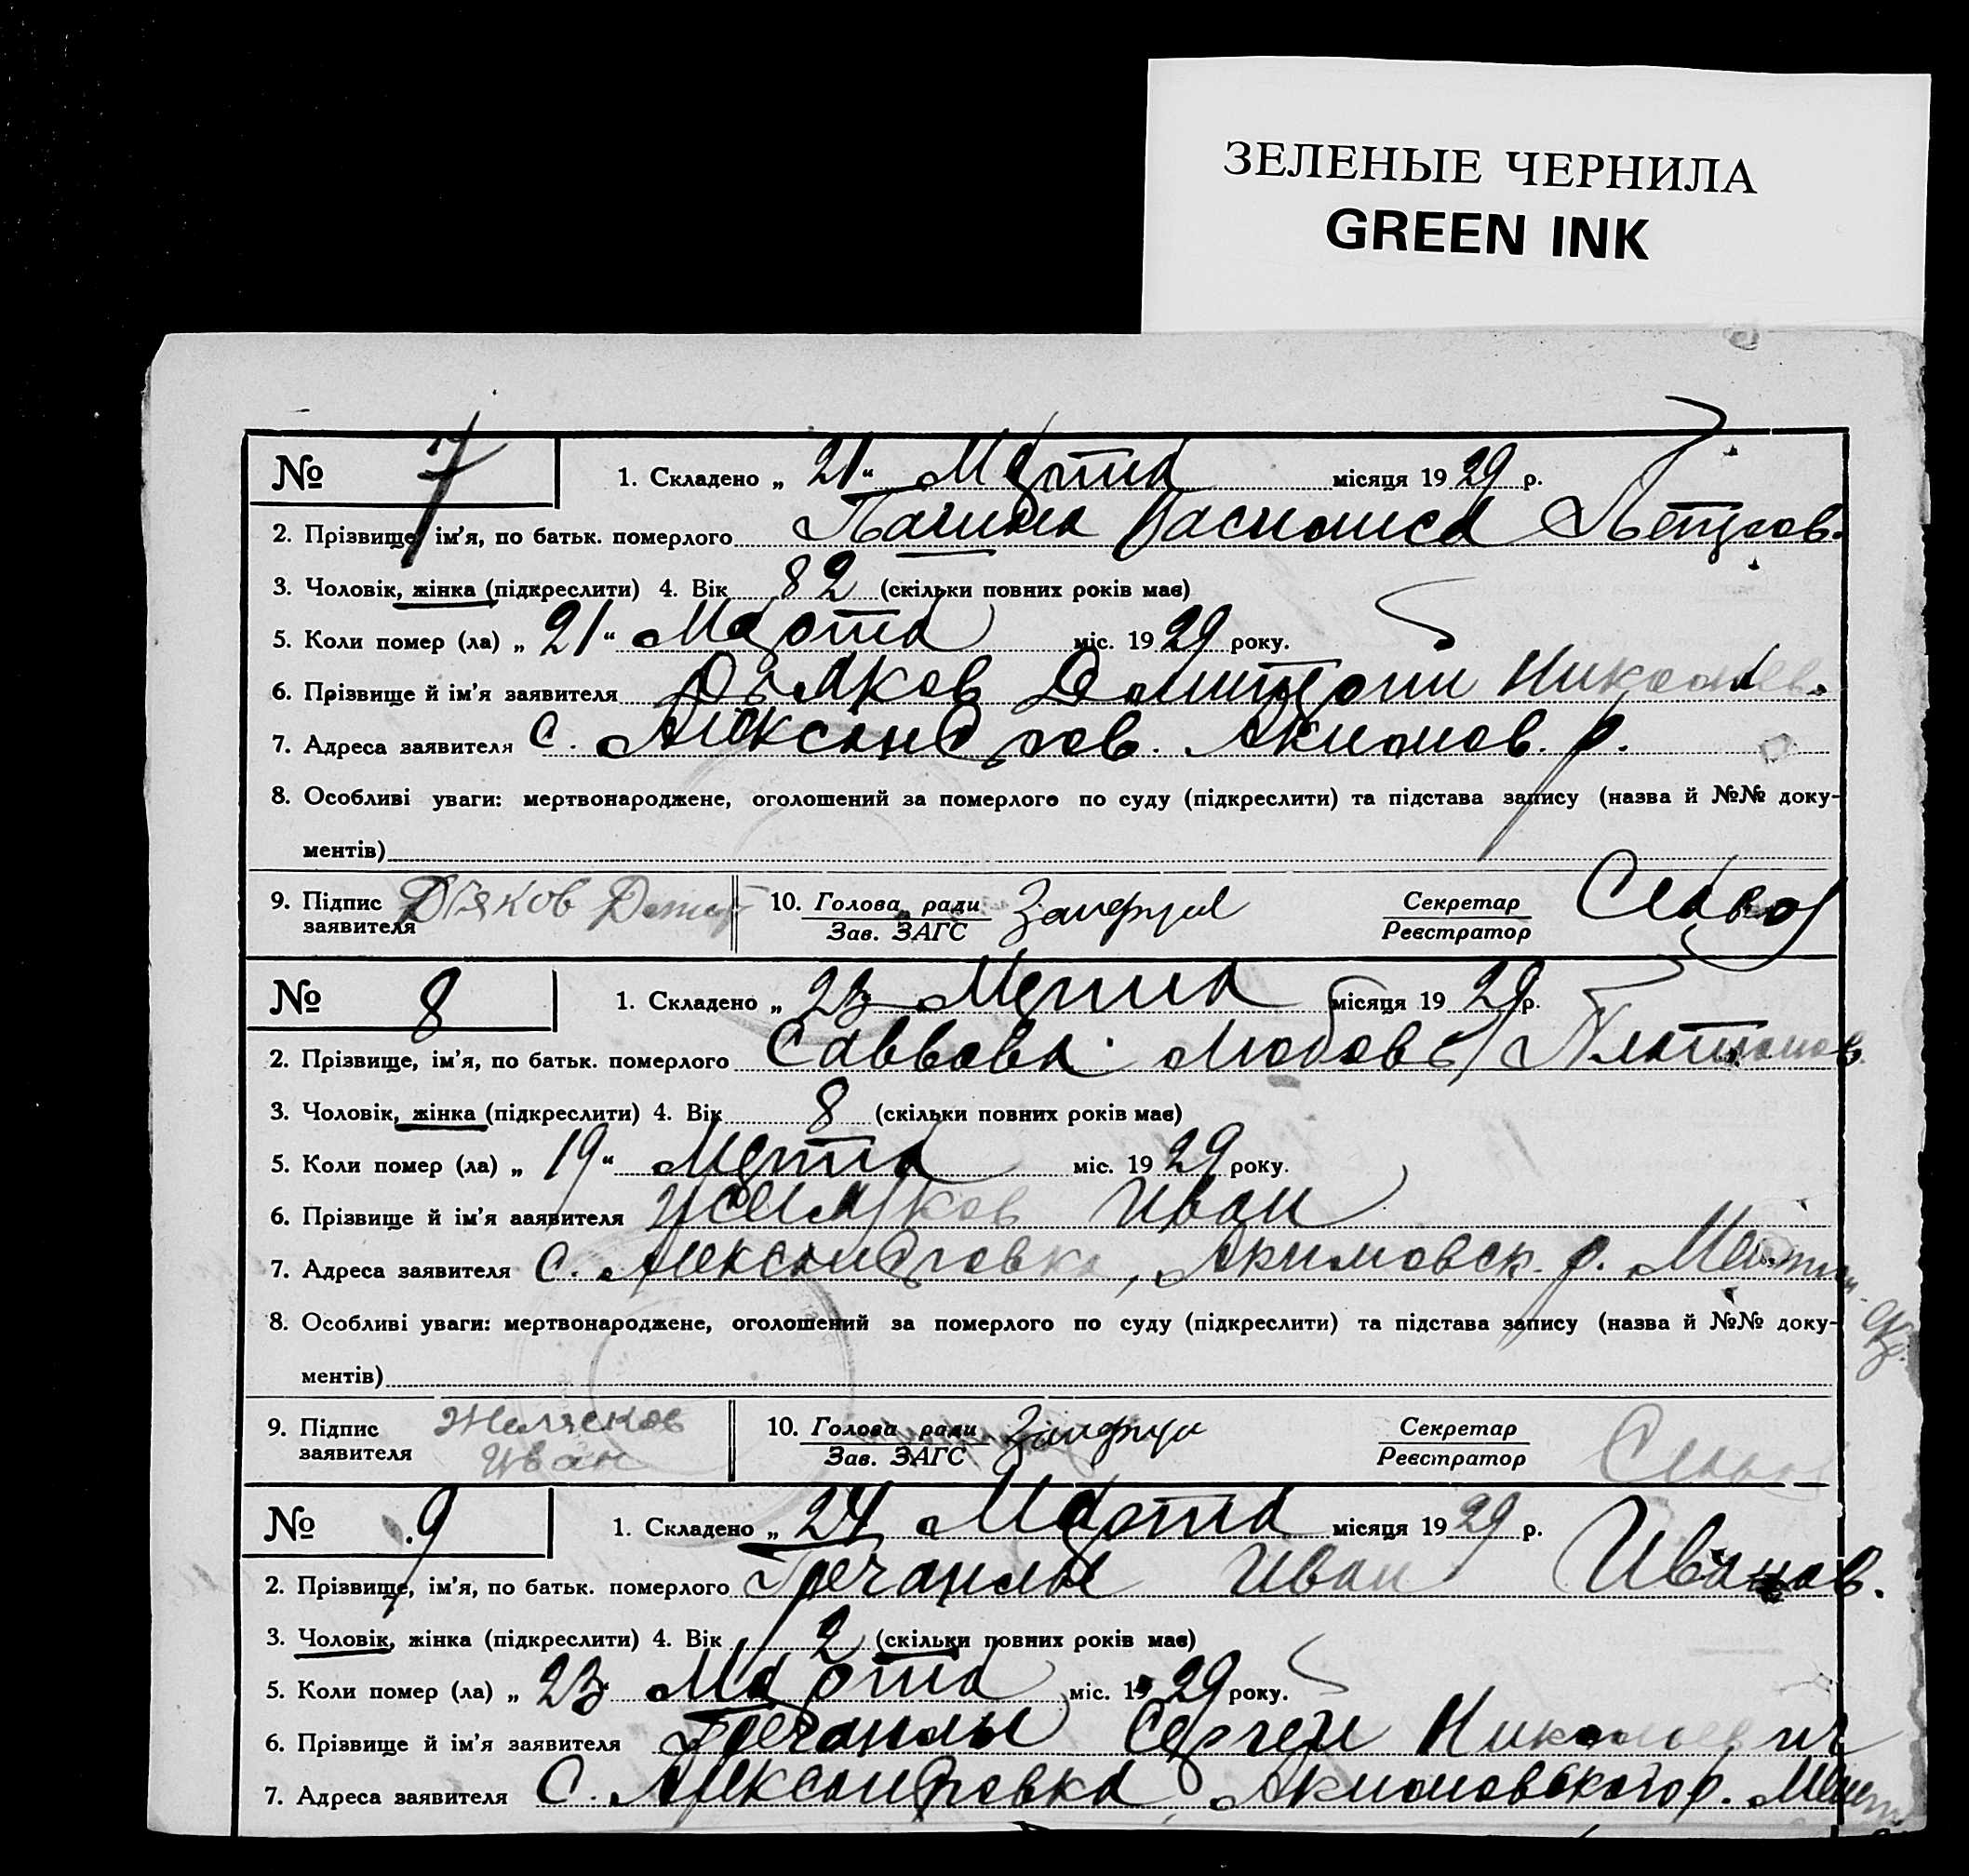 ЗЕЛЕНЫЕ ЧЕРНИЛА
GREEN INK
№ 7 1. Складено „ 21 " Марта місяця 19 29 р.
2. Прізвище, ім'я, по батьк. померлого Василиса Петров.
3. Чоловік, жінка (підкреслити) 4. Вік 82 (скільки повних років має)
5. Коли помер (ла) „ 21 " Марта міс. 19 29 року.
6. Прізвище й ім'я заявителя Дьяков Дмитрий Николаев.
7. Адреса заявителя С. Александров. Акимов. р.
8. Особливі уваги: мертвонароджене, оголошений за померлого по суду (підкреслити) та підстава запису (назва й №№ доку-
ментів)
9. Підпис заявителя Дьяков 10. Голова ради Зав. ЗАГС Секретар Реєстратор
№ 8 1. Складено „ 23 Марта місяця 19 29 р.
2. Прізвище, ім'я, по батьк. померлого Саввова Любовь Платонов.
3. Чоловік, жінка (підкреслити) 4. Вік 8 (скільки повних років має)
5. Коли помер (ла) „ 19 " Марта міс. 19 29 року.
6. Прізвище й ім'я заявителя Желясков Иван
7. Адреса заявителя С. Александровка, Акимовск. р.
8. Особливі уваги: мертвонароджене, оголошений за померлого по суду (підкреслити) та підстава запису (назва й №№ доку-
ментів)
9. Підпис заявителя Желясков Иван 10. Голова ради Зав. ЗАГС Секретар Реєстратор
№ 9 1. Складено „ 24 Марта місяця 19 29 р.
2. Прізвище, ім'я, по батьк. померлого Гречаилы Иван Иванов.
3. Чоловік, жінка (підкреслити) 4. Вік 2 (скільки повних років має)
5. Коли помер (ла) „ 23 Марта міс. 19 29 року.
6. Прізвище й ім'я заявителя Гречаилы Сергей Николаевич
7. Адреса заявителя С. Александровка Акимовского р.